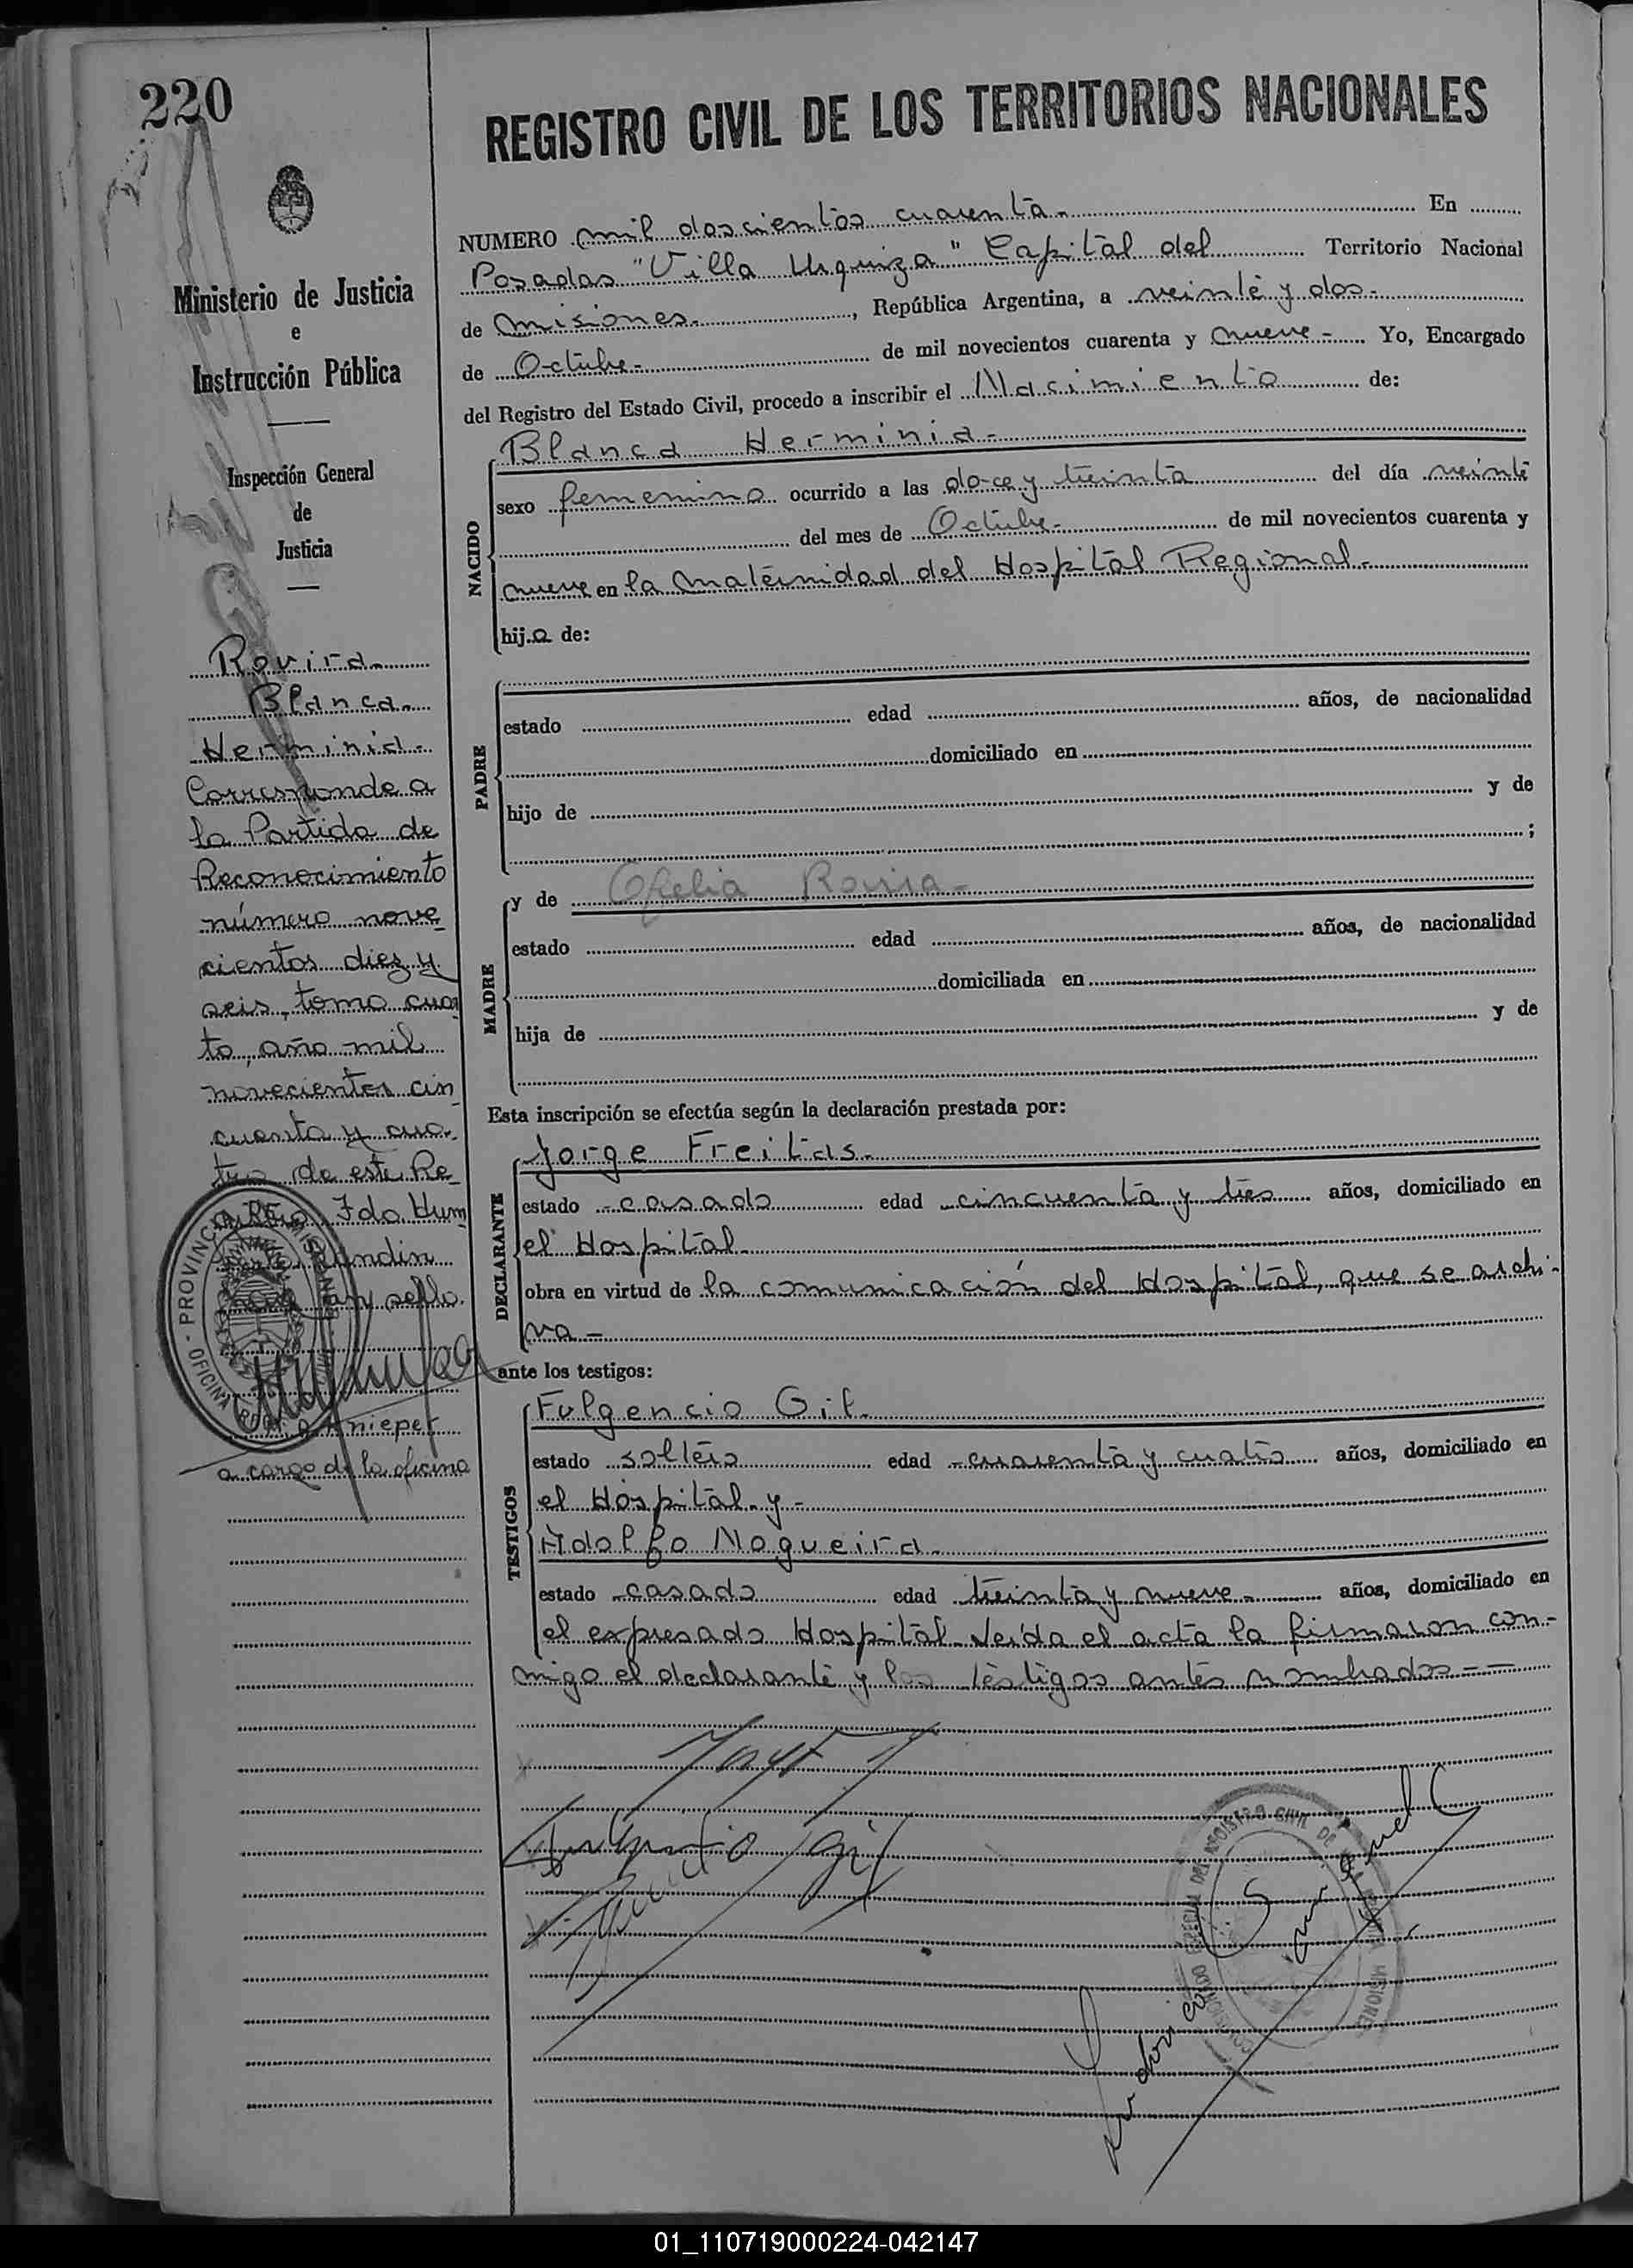 220
REGISTRO CIVIL DE LOS TERRITORIOS NACIONALES
Ministerio de Justicia
e
Instrucción Pública
Inspección General
de
Justicia
Rovira.
Blanca.
Herminia.
Corresponde a
la Partida de
Reconocimiento
número nove
cientos diez y
seis, tomo cuar
to, año mil
novecientos cin
cuenta y cua
tro de este Re
Fdo. Hum
Randin
hay un sello.
PROVINCIA DE MISIONES - OFICINA
Knieper
a cargo de la oficina
NUMERO mil doscientos cuarenta.- En
Posadas "Villa Urquiza" Capital del Territorio Nacional
de Misiones.-, República Argentina, a veinte y dos.-
de Octubre.- de mil novecientos cuarenta y nueve.- Yo, Encargado
del Registro del Estado Civil, procedo a inscribir el Nacimiento de:
Blanca Herminia.-
NACIDO
sexo femenino ocurrido a las doce y treinta del día veinte
del mes de Octubre.- de mil novecientos cuarenta y
nueve en la Maternidad del Hospital Regional.-
hija de:
PADRE
estado edad años, de nacionalidad
domiciliado en
hijo de y de
;
MADRE
y de Ofelia Rovira-
estado edad años, de nacionalidad
domiciliada en
hija de y de
Esta inscripción se efectúa según la declaración prestada por:
DECLARANTE
Jorge Freitas.-
estado casado edad cincuenta y tres años, domiciliado en
el Hospital.
obra en virtud de la comunicación del Hospital, que se archi-
va-
ante los testigos:
TESTIGOS
Fulgencio Gil.
estado soltero edad cuarenta y cuatro años, domiciliado en
el Hospital y-
Adolfo Nogueira.
estado casado edad treinta y nueve.- años, domiciliado en
el expresado Hospital. Leída el acta la firmaron con-
migo el declarante y los testigos antes nombrados--
01_110719000224-042147